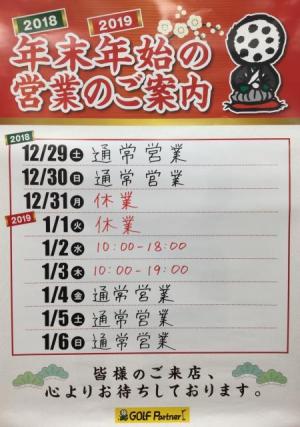 2018 2019
年末年始の
営業のご案内
2018
12/29 土 通常営業
12/30 日 通常営業
12/31 月 休業
2019
1/1 火 休業
1/2 水 10:00-18:00
1/3 木 10:00-19:00
1/4 金 通常営業
1/5 土 通常営業
1/6 日 通常営業
皆様のご来店、
心よりお待ちしております。
GOLF Partner